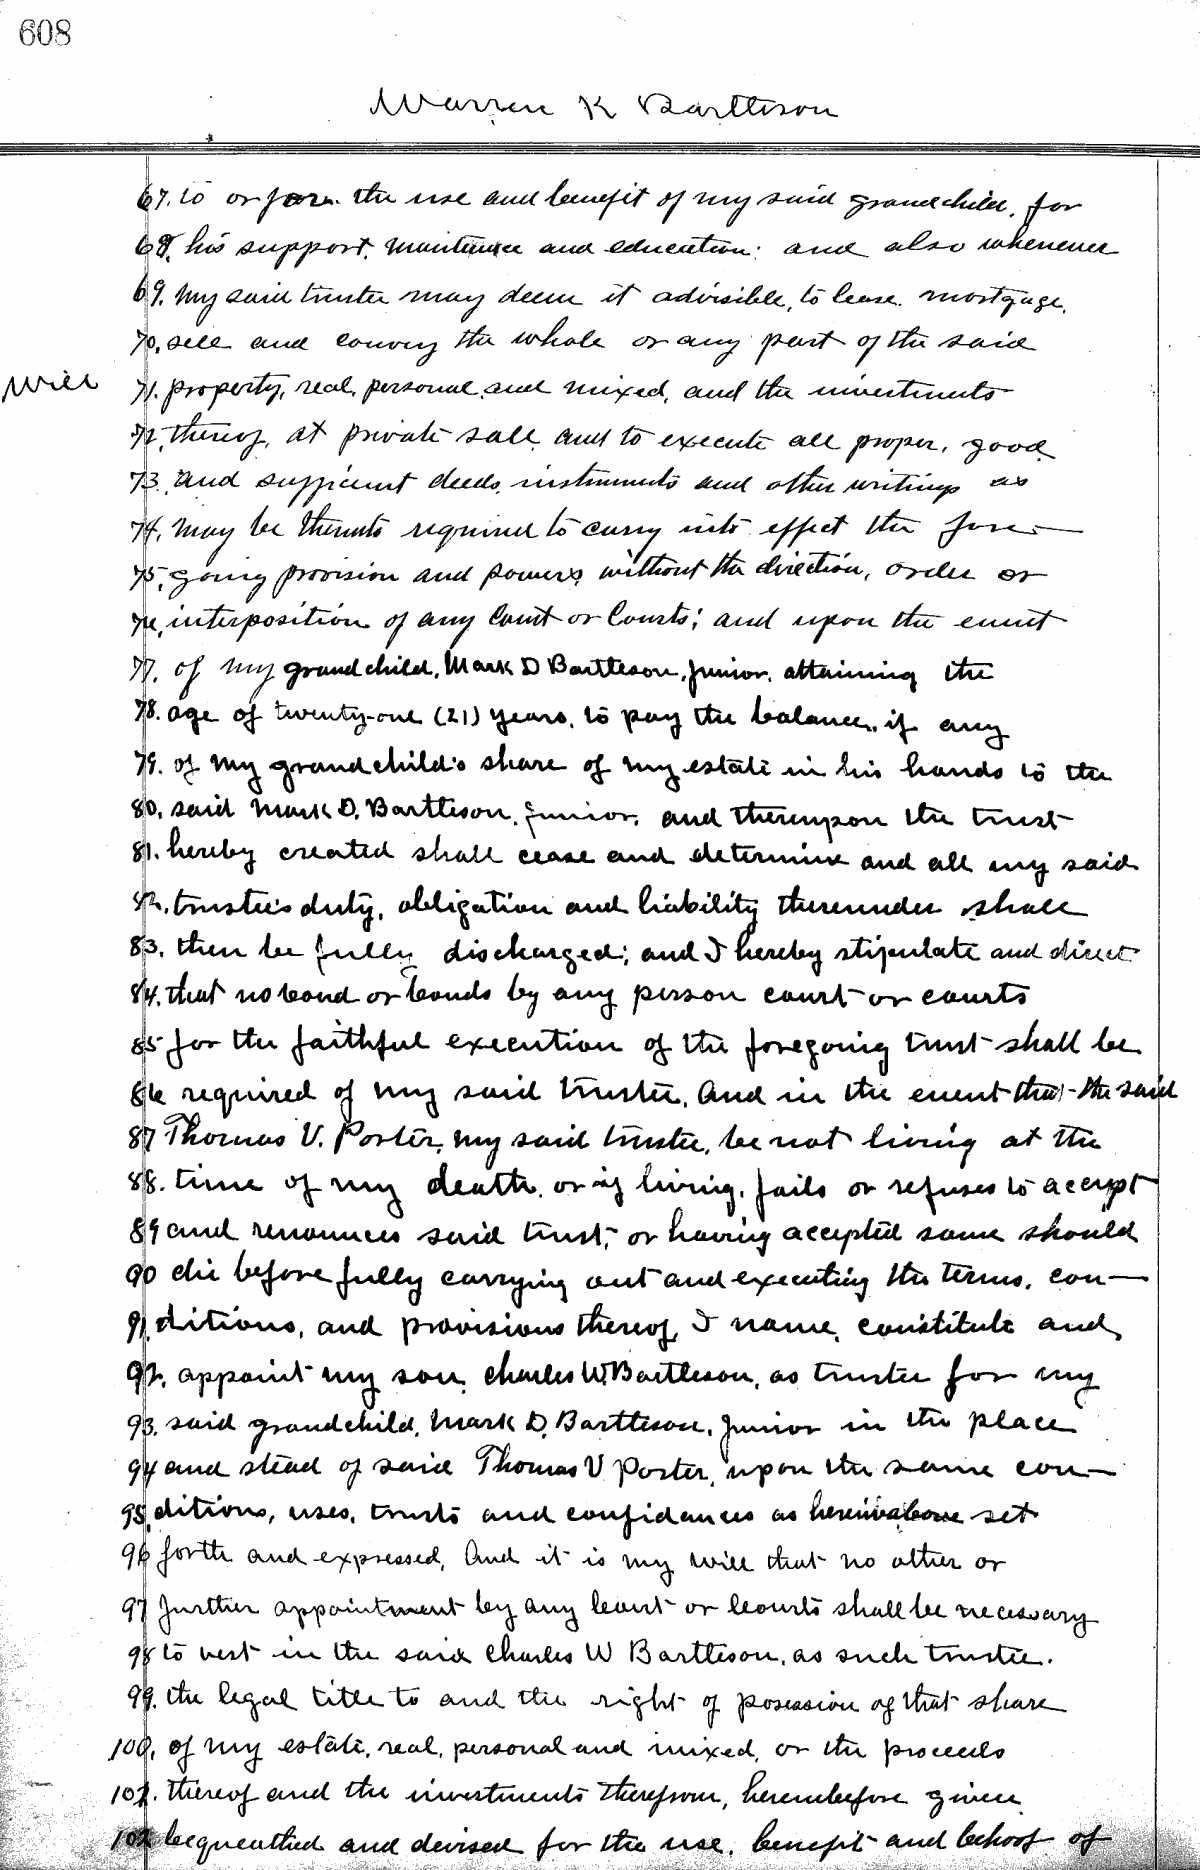 608
Warren K Bartleson
67. to or for the use and benefit of my said grandchild, for
68. his support, maintenance and education; and also whenever
69. my said trustee may deem it advisible, to lease, mortgage,
70. sell and convey the whole or any part of the said
Will
71. property, real, personal and mixed, and the investments
72. thereof, at private sale and to execute all proper, good
73. and sufficient deeds, instruments and other writings as
74. may be thereunto required to carry into effect the fore-
75. going provision and powers, without the direction, order or
76. interposition of any Court or Courts; and upon the event
77. of my grandchild, Mark D Bartleson, Junior, attaining the
78. age of twenty-one (21) years, to pay the balance, if any
79. of my grandchild's share of my estate in his hands to the
80. said Mark D. Bartleson, Junior, and thereupon the trust
81. hereby created shall cease and determine and all my said
82. trustee's duty, obligation and liability thereunder shall
83. then be fully discharged; and I hereby stipulate and direct
84. that no bond or bonds by any person court or courts
85 for the faithful execution of the foregoing trust shall be
86 required of my said trustee. And in the event that the said
87 Thomas V. Porter, my said trustee, be not living at the
88. time of my death, or if living, fails or refuses to accept
89 and renounces said trust, or having accepted same should
90 die before fully carrying out and executing the terms, con-
91. ditions, and provisions thereof, I name, constitute and
92. appoint my son, Charles W. Bartleson, as trustee for my
93. said grandchild, Mark D. Bartleson, Junior in the place
94 and stead of said Thomas V Porter, upon the same con-
95. ditions, uses, trusts and confidances as hereinabove set
96 forth and expressed, And it is my will that no other or
97 further appointment by any Court or Courts shall be necessary
98 to vest in the said Charles W Bartleson, as such trustee.
99. the legal title to and the right of posession of that share
100. of my estate, real, personal and mixed, or the proceeds
101. thereof and the investments therefrom, hereinbefore given
102 bequeathed and devised for the use, benefit and behoof of